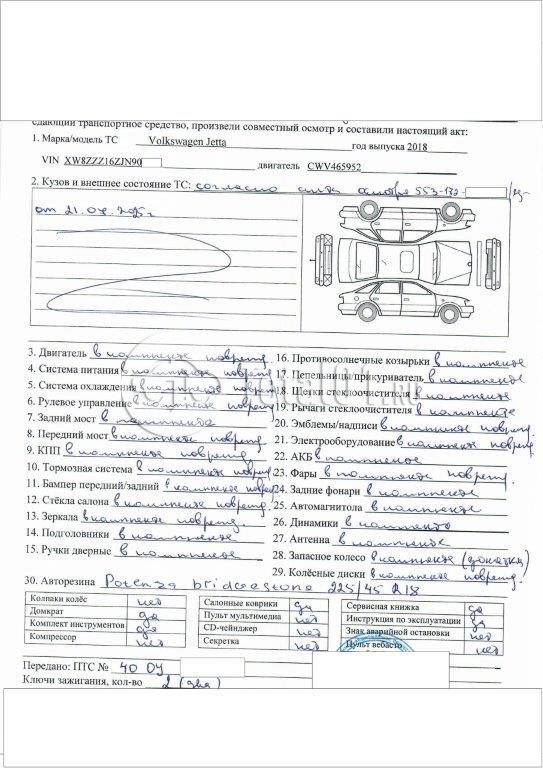 сдающий транспортное средство, произвели совместный осмотр и составили настоящий акт:
1. Марка/модель ТС Volkswagen Jetta год выпуска 2018
VIN XW8ZZZ16ZJN90 двигатель CWV465952
2. Кузов и внешнее состояние ТС: согласно акта осмотра 553-172-
от 21.07.2025г
3. Двигатель в комплекте поврежд.
4. Система питания в комплекте поврежд
5. Система охлаждения в комплекте поврежд
6. Рулевое управление в комплекте поврежд
7. Задний мост в комплекте
8. Передний мост в комплекте поврежд
9. КПП в комплекте поврежд.
10. Тормозная система в комплекте поврежд
11. Бампер передний/задний в комплекте поврежд
12. Стёкла салона в комплекте поврежд
13. Зеркала в комплекте поврежд.
14. Подголовники в комплекте
15. Ручки дверные в комплекте
16. Противосолнечные козырьки в комплекте
17. Пепельницы/прикуриватель в комплекте
18. Щетки стеклоочистителя в комплекте
19. Рычаги стеклоочистителя в комплекте
20. Эмблемы/надписи в комплекте поврежд.
21. Электрооборудование в комплекте поврежд
22. АКБ в комплекте
23. Фары в комплекте поврежд.
24. Задние фонари в комплекте
25. Автомагнитола в комплекте
26. Динамики в комплекте
27. Антенна в комплекте
28. Запасное колесо в комплекте (докатка)
29. Колёсные диски в комплекте поврежд.
30. Авторезина Potenza bridgestone 225/45 R18
Колпаки колёс нет
Домкрат да
Комплект инструментов да
Компрессор нет
Салонные коврики да
Пульт мультимедиа нет
CD-чейнджер нет
Секретка нет
Сервисная книжка да
Инструкция по эксплуатации да
Знак аварийной остановки нет
Пульт вебасто нет
Передано: ПТС № 40 ОУ
Ключи зажигания, кол-во 2 (два)